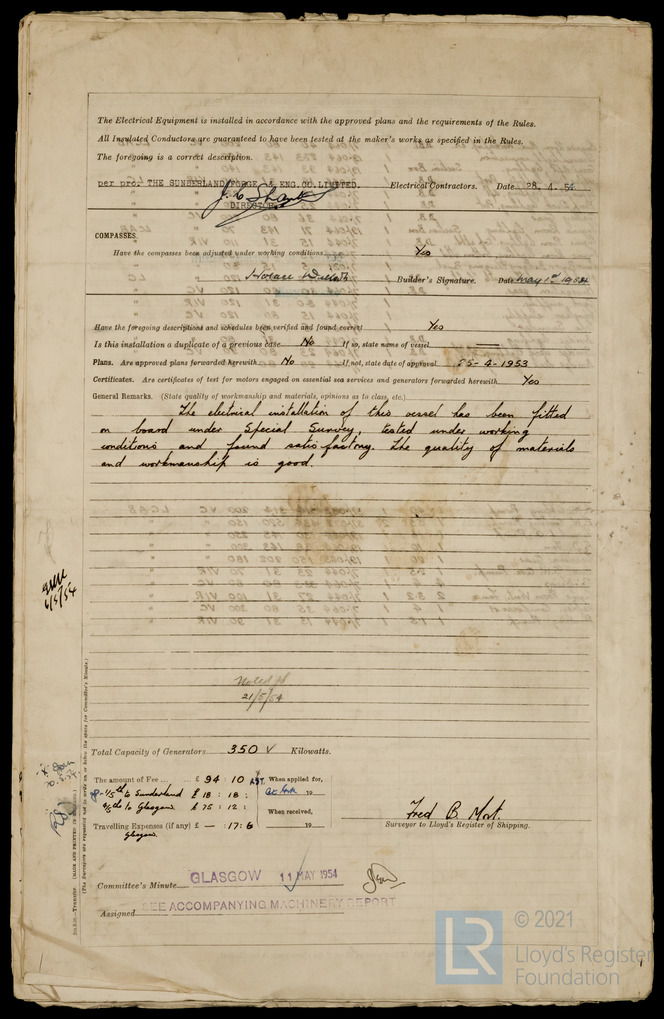 The Electrical Equipment is installed in accordance with the approved plans and the requirements of the Rules.
All Insulated Conductors are guaranteed to have been tested at the maker's works as specified in the Rules.
The foregoing is a correct description.
per pro. THE SUNDERLAND FORGE & ENG. CO. LIMITED. Electrical Contractors. Date 28. 4. 54.
DIRECTOR
COMPASSES.
Have the compasses been adjusted under working conditions Yes
Horace Builder's Signature. Date May 1st 1954
Have the foregoing descriptions and schedules been verified and found correct Yes
Is this installation a duplicate of a previous case No If so, state name of vessel
Plans. Are approved plans forwarded herewith No If not, state date of approval 25-4-1953
Certificates. Are certificates of test for motors engaged on essential sea services and generators forwarded herewith Yes
General Remarks. (State quality of workmanship and materials, opinions as to class, etc.)
The electrical installation of this vessel has been fitted
on board under Special Survey, tested under working
conditions and found satisfactory. The quality of materials
and workmanship is good.
6/5/54
Noted
21/5/54
Total Capacity of Generators 350 Kilowatts.
The amount of Fee ... £ 94 : 10 When applied for,
1/5th to Sunderland £ 18 : 18 : 19
4/5th to Glasgow £ 75 : 12 : When received,
Travelling Expenses (if any) £ — : 17 : 6 19
Glasgow
Fred B. Mort.
Surveyor to Lloyd's Register of Shipping.
Committee's Minute GLASGOW 11 MAY 1954
Assigned SEE ACCOMPANYING MACHINERY REPORT
(The Surveyors are requested not to write on or below the space for Committee's Minute.)
LR
© 2021
Lloyd's Register
Foundation